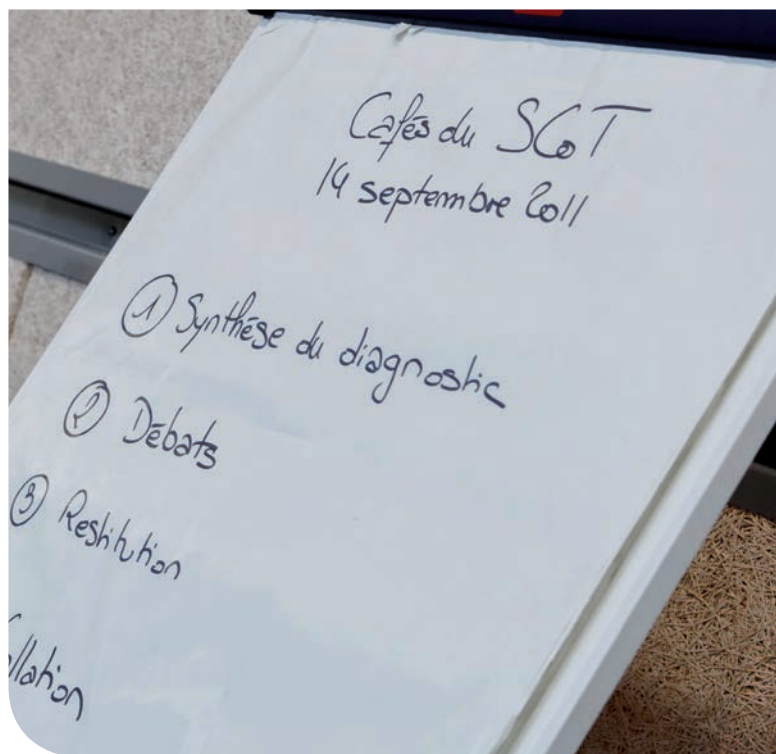 Cafés du SCoT
14 septembre 2011
① Synthèse du diagnostic
② Débats
③ Restitution
ollation